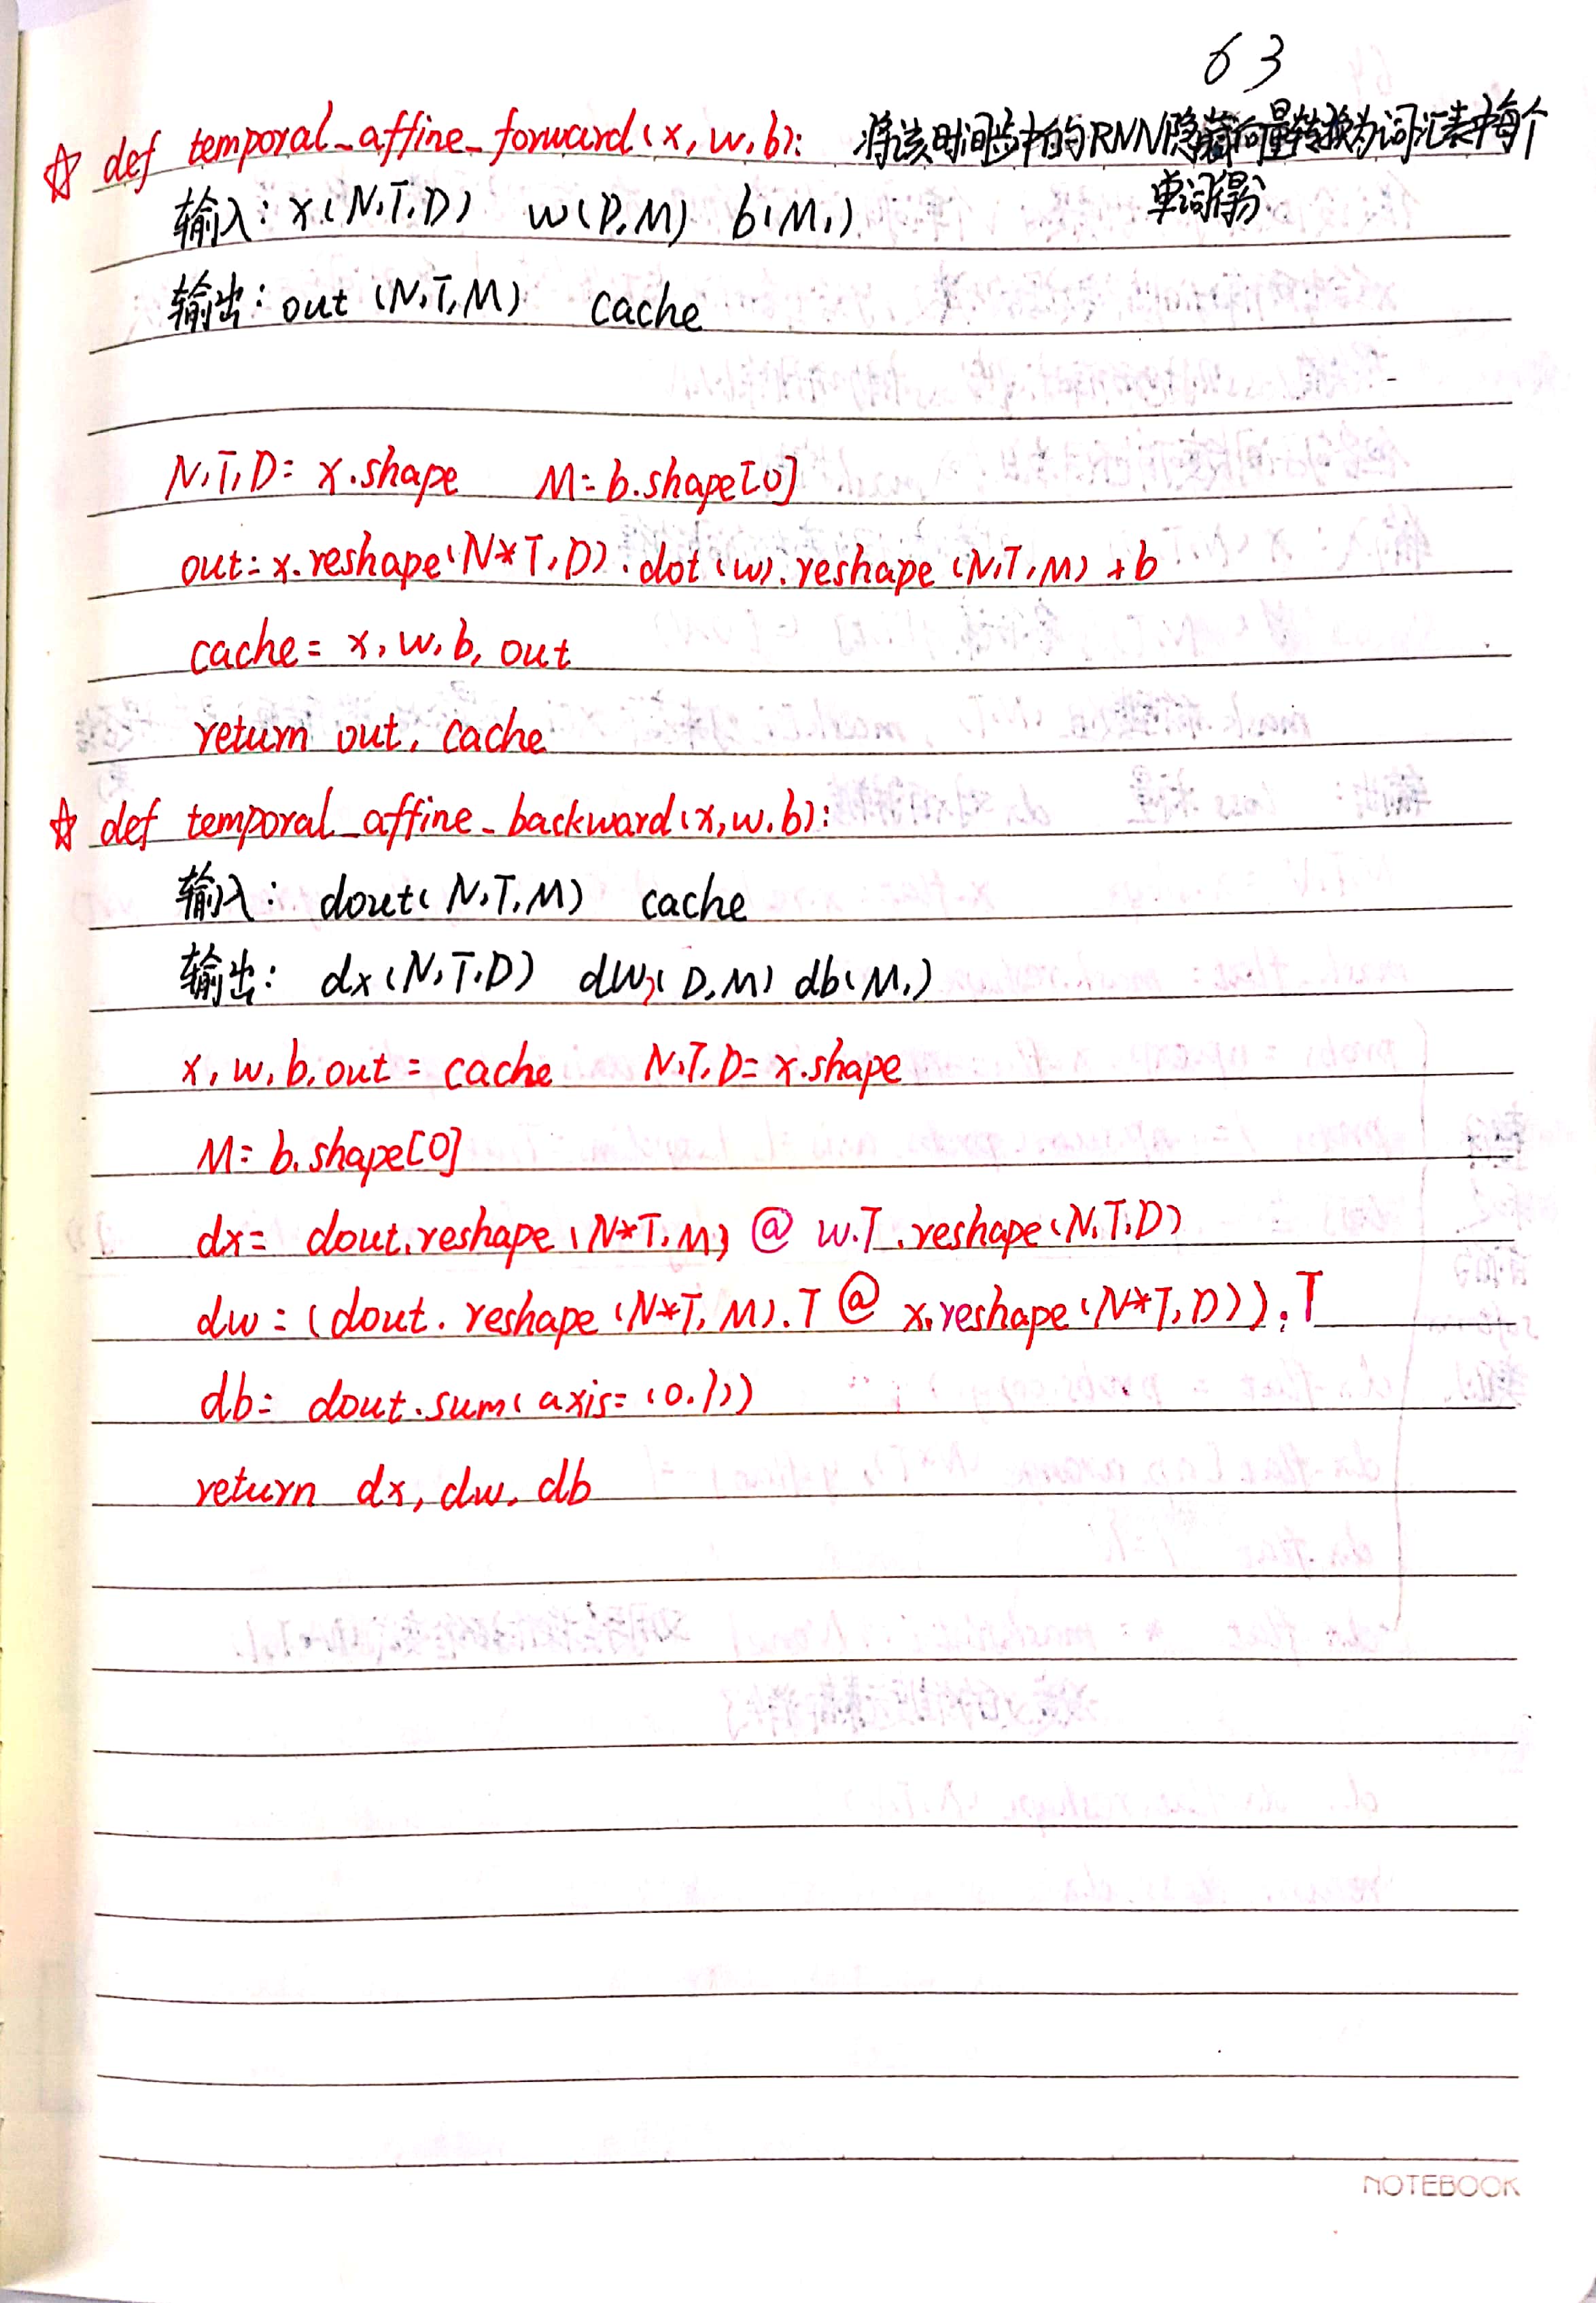 63
☆ def temporal_affine_forward(x, w, b): 将该时间步中的RNN隐藏向量转换为词汇表中每个
单词得分
输入: x(N,T,D) w(D,M) b(M,)
输出: out (N,T,M) cache
N,T,D = x.shape M = b.shape[0]
out = x.reshape(N*T,D).dot(w).reshape(N,T,M) + b
cache = x, w, b, out
return out, cache
☆ def temporal_affine_backward(x,w,b):
输入: dout(N,T,M) cache
输出: dx(N,T,D) dw(D,M) db(M,)
x, w, b, out = cache N,T,D = x.shape
M = b.shape[0]
dx = dout.reshape(N*T,M) @ w.T.reshape(N,T,D)
dw = (dout.reshape(N*T,M).T @ x.reshape(N*T,D)).T
db = dout.sum(axis=(0,1))
return dx, dw, db
NOTEBOOK